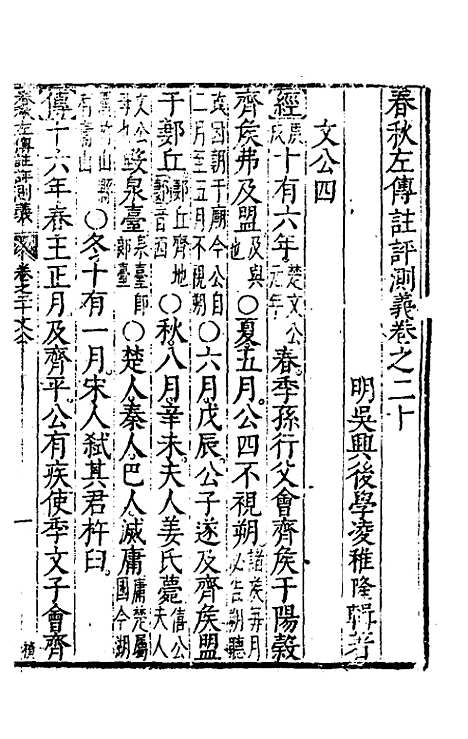 春秋左傳註評測義卷之二十
明吳興後學凌稚隆輯著
文公四
經庚戌十有六年楚文公元年春季孫行父會齊侯于陽穀
齊侯弗及盟及與也○夏五月公四不視朔諸侯每月必告朔聽
政因朝于廟今公自二月至五月不視朔○六月戊辰公子遂及齊侯盟
于郪丘郪丘齊地郪音西○秋八月辛未夫人姜氏薨僖公夫人
文公母也毀泉臺泉臺即郎臺○楚人秦人巴人滅庸庸楚屬國今湖
廣竹山縣有庸山○冬十有一月宋人弒其君杵臼
傳十六年春王正月及齊平公有疾使季文子會齊
春秋左傳註評測義 卷之二十文公 一